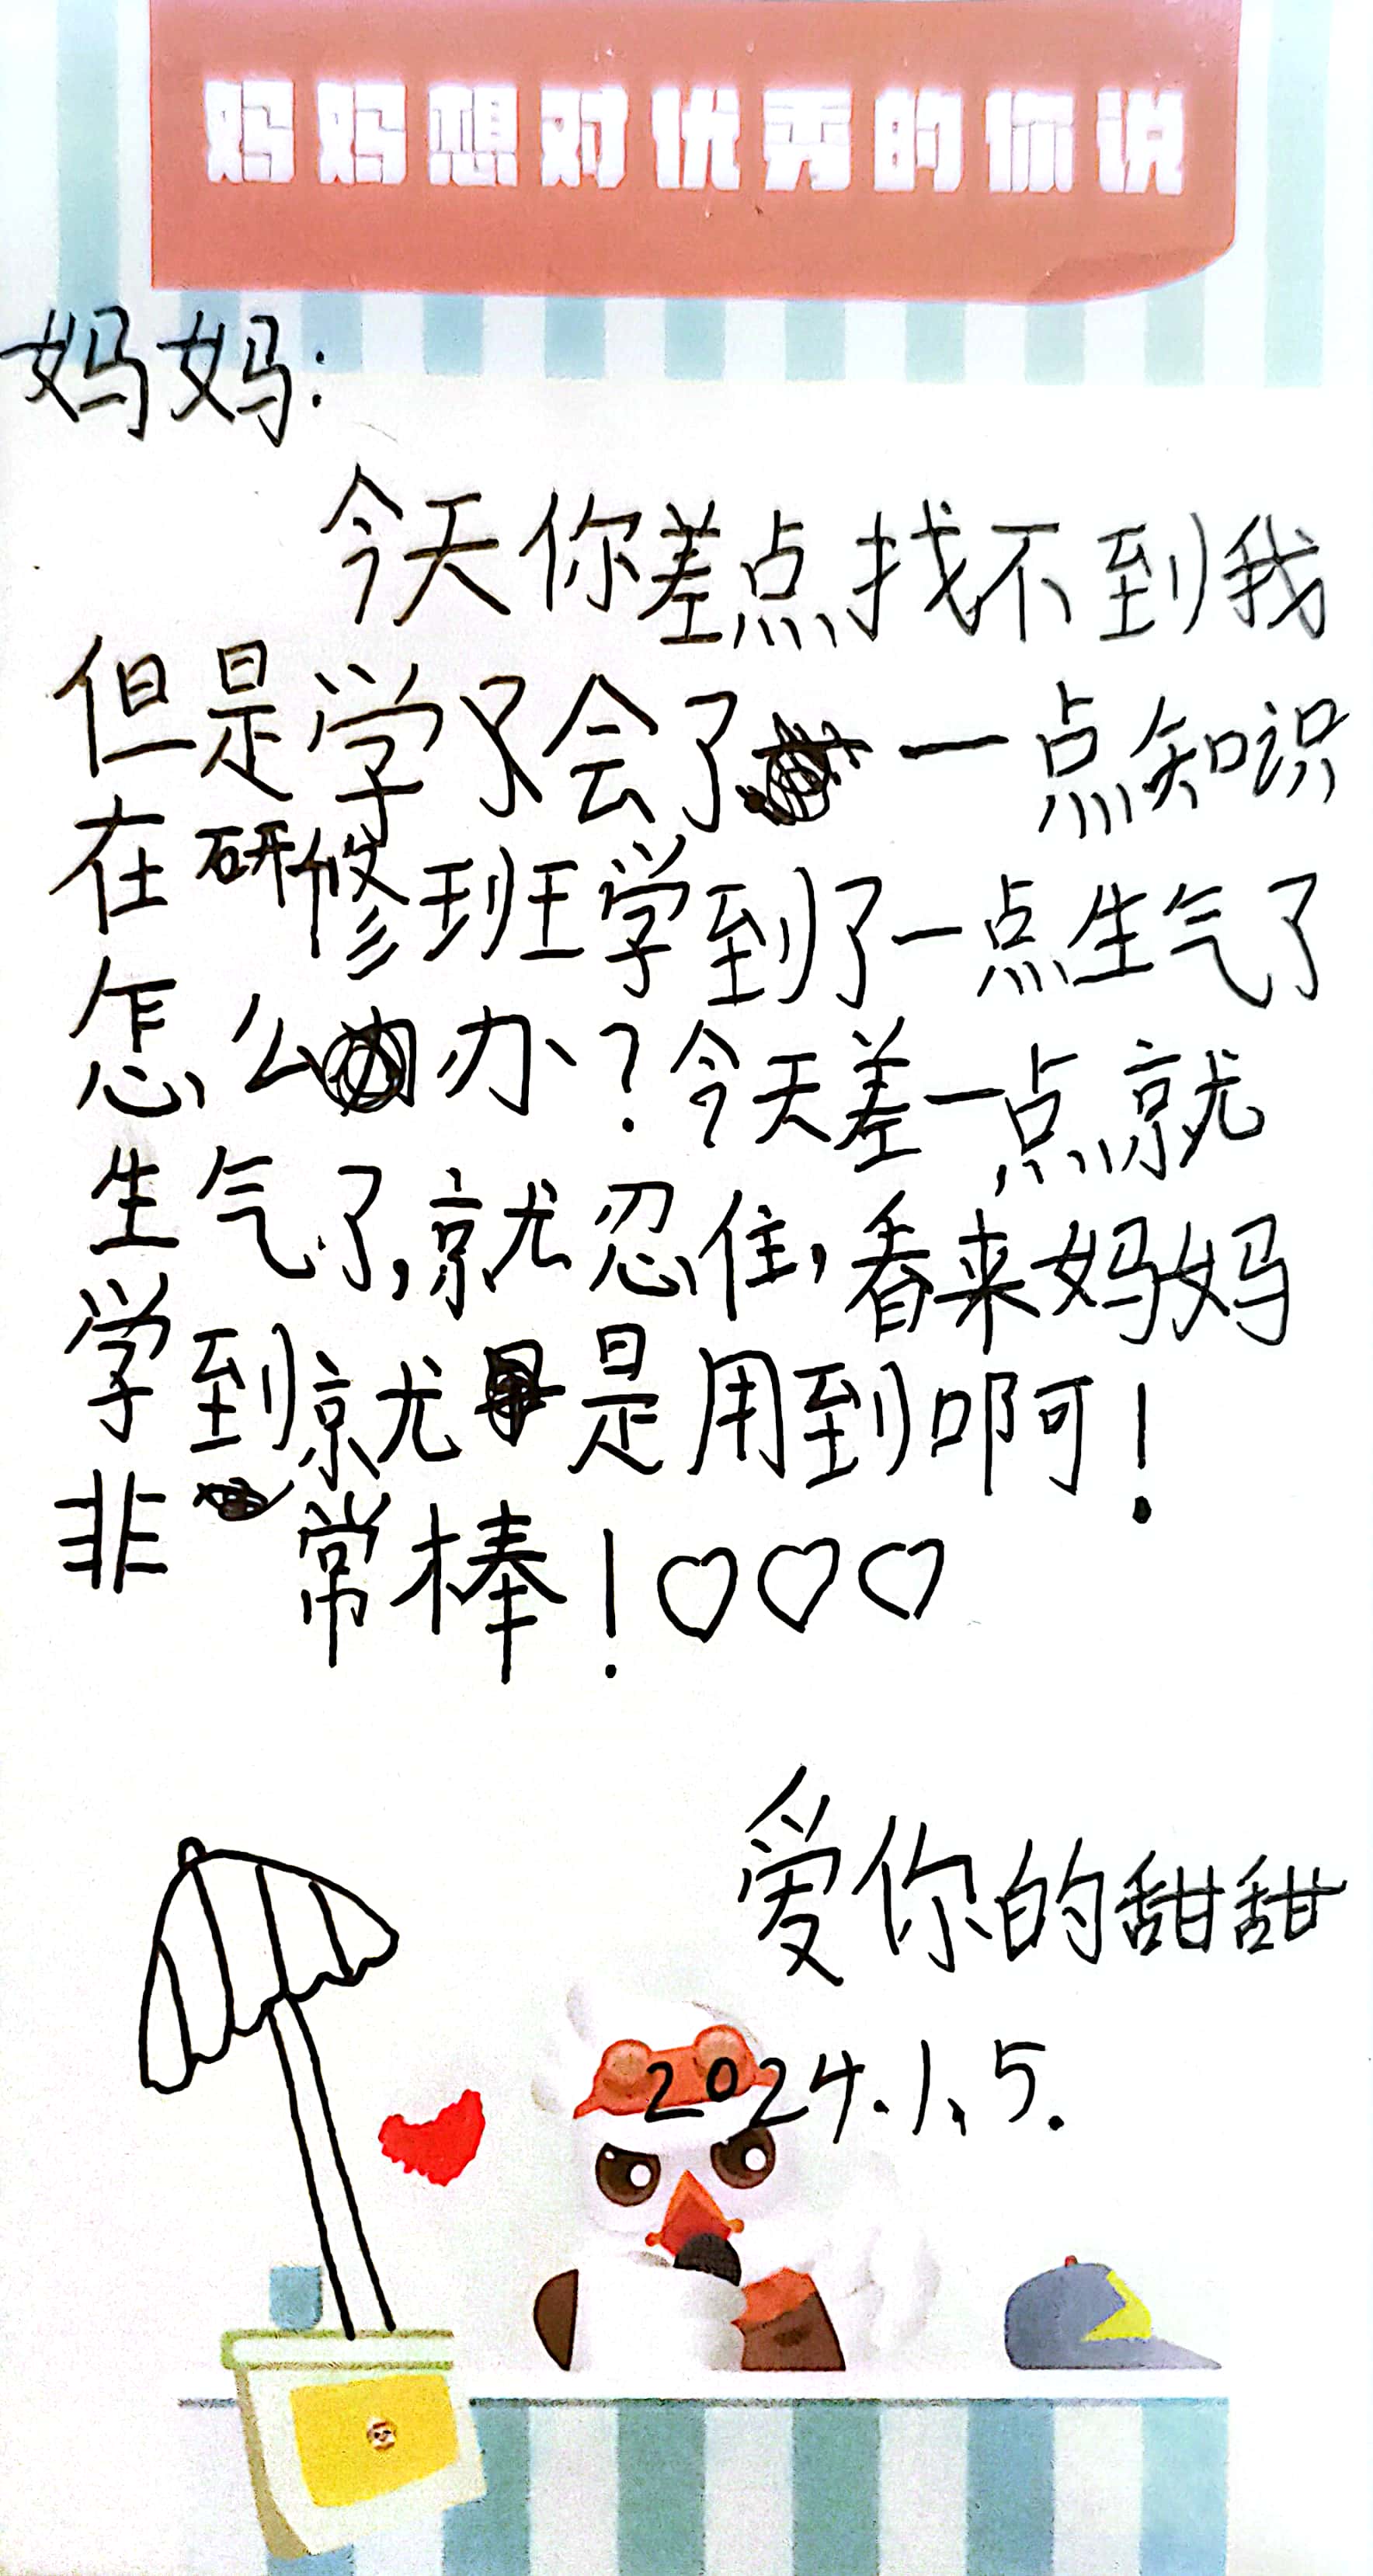 妈妈想对优秀的你说
妈妈:
今天你差点找不到我
但是学了会了一点知识
在研修班学到了一点生气了
怎么办?今天差一点就
生气了,就忍住,看来妈妈
学到就是用到啊!
非常棒!♡♡♡
爱你的甜甜
2024.1.5.